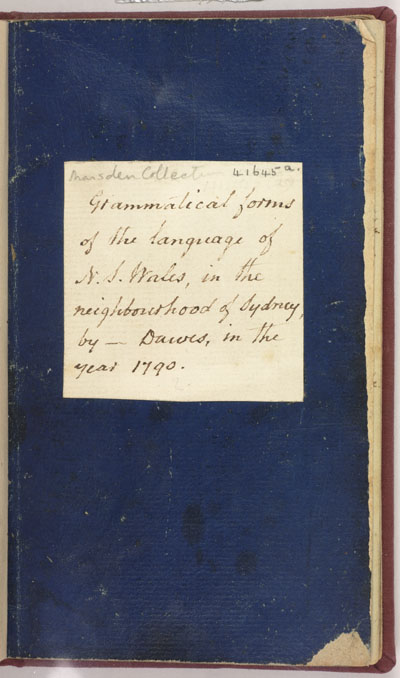 Marsden Collect
41645 a.
Grammatical forms
of the language of
N. S. Wales, in the
neighbourhood of Sydney,
by — Dawes, in the
year 1790.